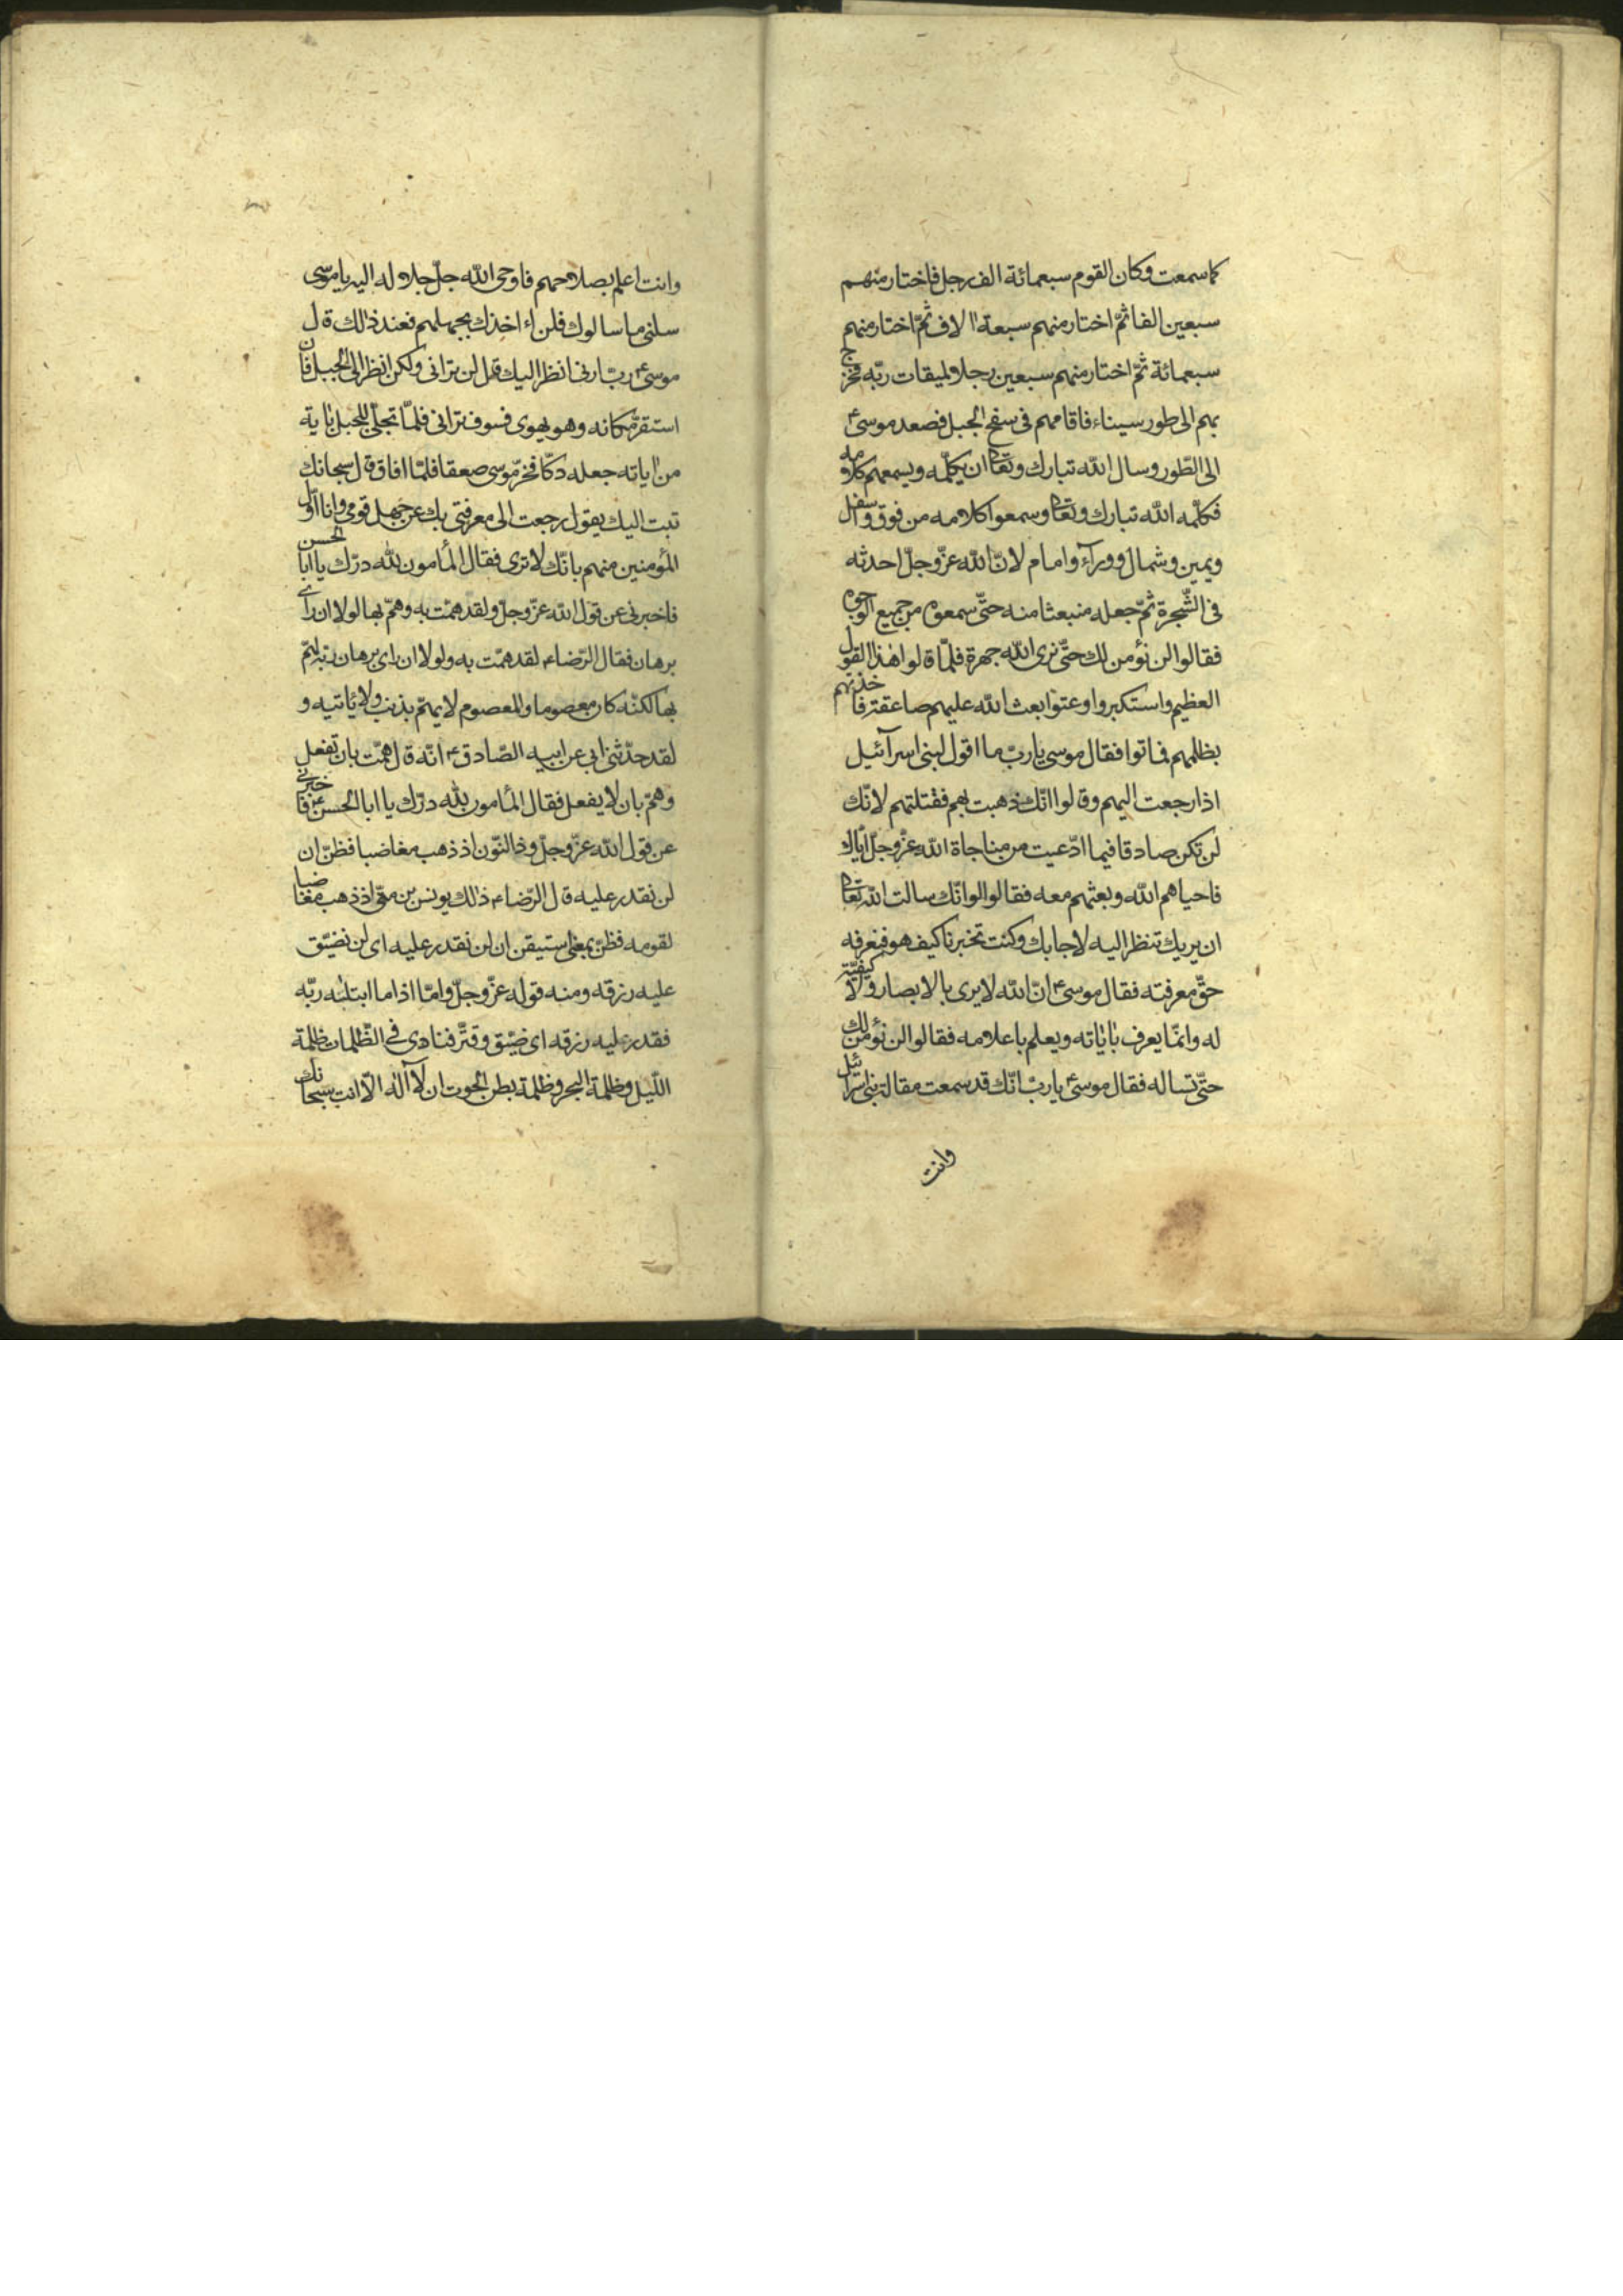 كما سمعت وكان القوم سبعمائة الف رجل فاختار منهم
سبعين الفا ثمّ اختار منهم سبعة الاف ثمّ اختار منهم
سبعمائة ثمّ اختار منهم سبعين رجلا لميقات ربّه فخرج
بهم الى طور سيناء فاقامهم فى سفح الجبل فصعد موسىٰ ع
الى الطّور وسال الله تبارك وتعالى ان يكلّمه ويسمعهم كلامه
فكلّمه الله تبارك وتعالى وسمعوا كلامه من فوق واسفل
ويمين وشمال ووراء وامام لانّ الله عزّ وجلّ احدثه
فى الشّجرة ثمّ جعله منبعثا منه حتّى سمعوه من جميع الوجوه
فقالوا لن نؤمن لك حتّى نرى الله جهرة فلمّا قالوا هذا القول
العظيم واستكبروا وعتوا بعث الله عليهم صاعقة فاخذتهم
بظلمهم فماتوا فقال موسى يا ربّ ما اقول لبنى اسرآئيل
اذا رجعت اليهم وقالوا انّك ذهبت بهم فقتلتهم لانّك
لن تكن صادقا فيما ادّعيت من مناجاة الله عزّ وجلّ ايّاك
فاحياهم الله وبعثهم معه فقالوا لو انّك سالت الله تعالى
ان يريك تنظر اليه لاجابك وكنت تخبرنا كيف هو فنعرفه
حقّ معرفته فقال موسى ع انّ الله لا يرى بالابصار ولا كيفيّة
له وانّما يعرف باياته ويعلم باعلامه فقالوا لن نؤمن لك
حتّى تساله فقال موسى ع يا ربّ انّك قد سمعت مقالة بنى اسرائيل
وانت
وانت اعلم بصلاحهم فاوحى الله جلّ جلاله اليه يا موسى
سلنى ما سالوك فلن اء اخذك بجهلهم فعند ذالك قال
موسى ع ربّ ارنى انظر اليك قل لن ترانى ولكن انظر الى الجبل فان
استقرّ مكانه وهو يهوى فسوف ترانى فلمّا تجلّى للجبل باية
من اياته جعله دكّا فخرّ موسى صعقا فلمّا افاق قال سبحانك
تبت اليك يقول رجعت الى معرفتى بك عن جهل قومى وانا اوّل
المؤمنين منهم بانّك لا ترى فقال المأمون لله درّك يا ابا الحسن
فاخبرنى عن قول الله عزّ وجلّ ولقد همّت به وهمّ بها لولا ان راى
برهان فقال الرّضا ع لقد همّت به ولولا ان راى برهان ربّه لهمّ
بها لكنّه كان معصوما والمعصوم لا يهمّ بذنب ولا ياتيه و
لقد حدّثنى ابى عن ابيه الصّادق ع انّه قال همّت بان تفعل
وهمّ بان لا يفعل فقال المأمون لله درّك يا ابا الحسن ع فاخبرنى
عن قول الله عزّ وجلّ وذا النّون اذ ذهب مغاضبا فظنّ ان
لن نقدر عليه قال الرّضا ع ذالك يونس بن متى اذ ذهب مغاضبا
لقومه فظنّ بمعنى استيقن ان لن نقدر عليه اى لن نضيّق
عليه رزقه ومنه قوله عزّ وجلّ وامّا اذا ما ابتليه ربّه
فقدر عليه رزقه اى ضيّق وقتّر فنادى فى الظّلمات ظلمة
اللّيل وظلمة البحر وظلمة بطن الحوت ان لا آله الّا انت سبحانك